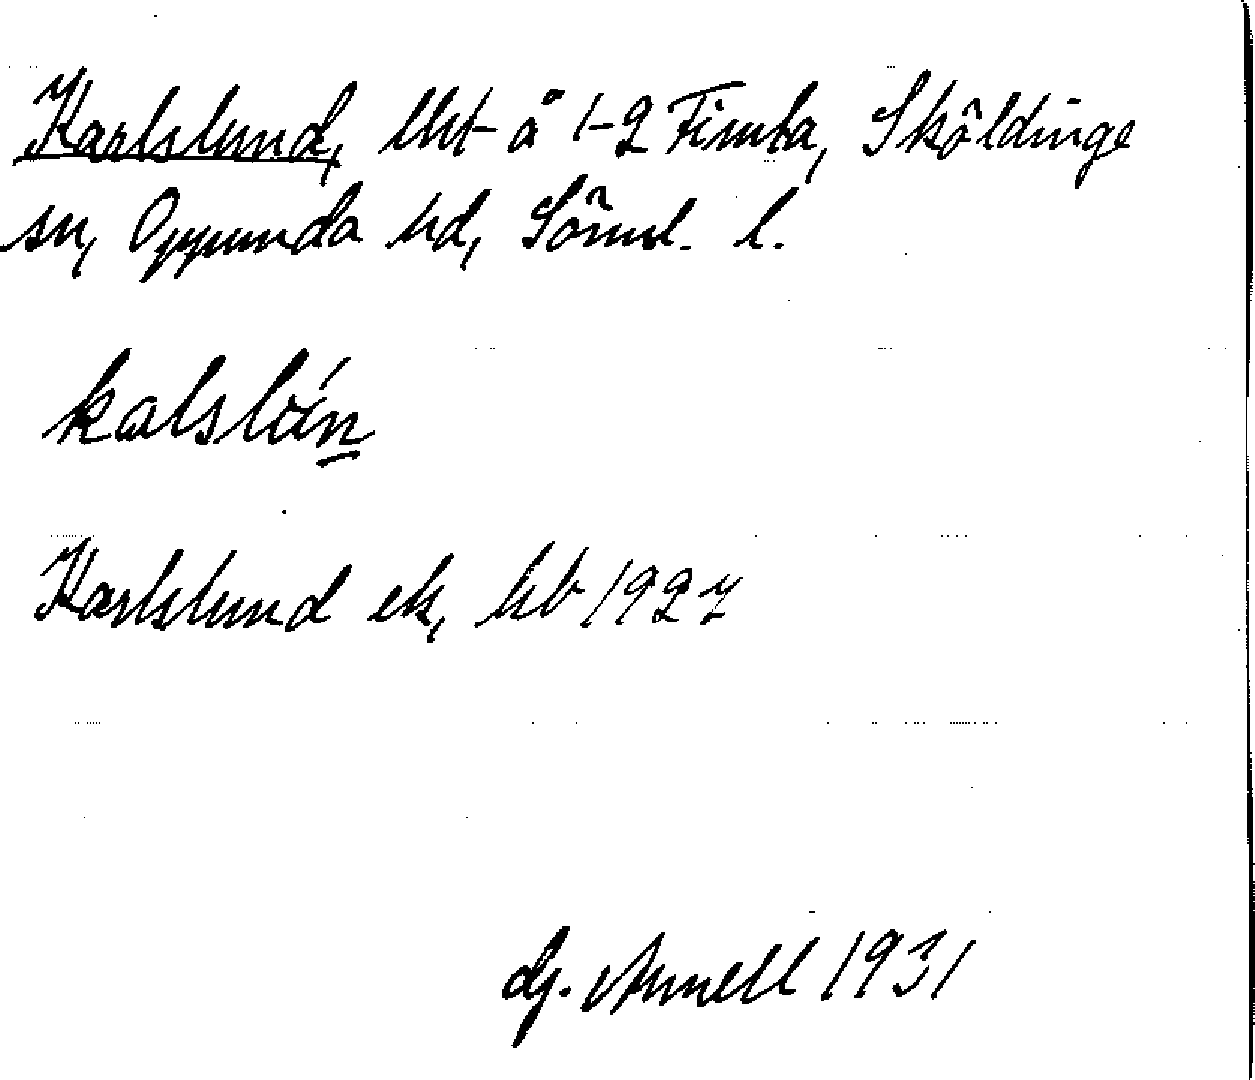 Karlslund, lht å 1-2 Fimta, Sköldinge
sn, Oppunda hd, Söml. l.
kalslón
Karlslund ek, kb 1927
dj. Arnell 1931